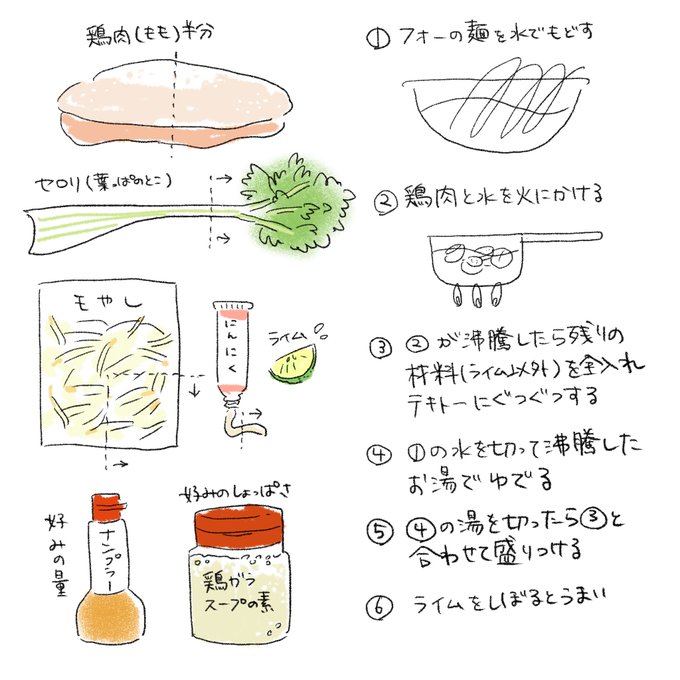 鶏肉(もも)半分
セロリ(葉っぱのとこ)
もやし
にんにく
ライム
好みの量
ナンプラー
好みのしょっぱさ
鶏ガラ
スープの素
① フォーの麺を水でもどす
② 鶏肉と水を火にかける
③ ②が沸騰したら残りの
材料(ライム以外)を全入れ
テキトーにぐつぐつする
④ ①の水を切って沸騰した
お湯でゆでる
⑤ ④の湯を切ったら③と
合わせて盛りつける
⑥ ライムをしぼるとうまい